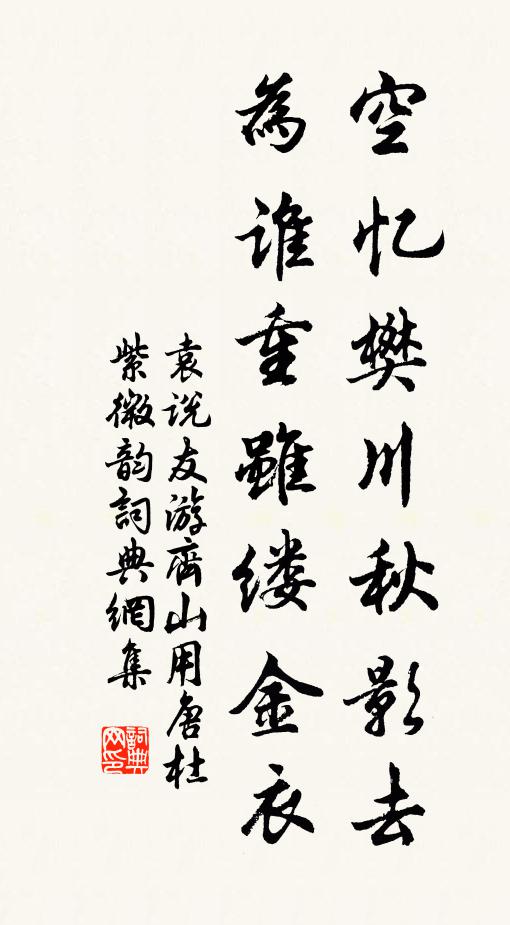 空忆樊川秋影去
為谁重雖缕金衣
袁说友游齊山用唐杜
紫微韵詞典網集
詞典网印